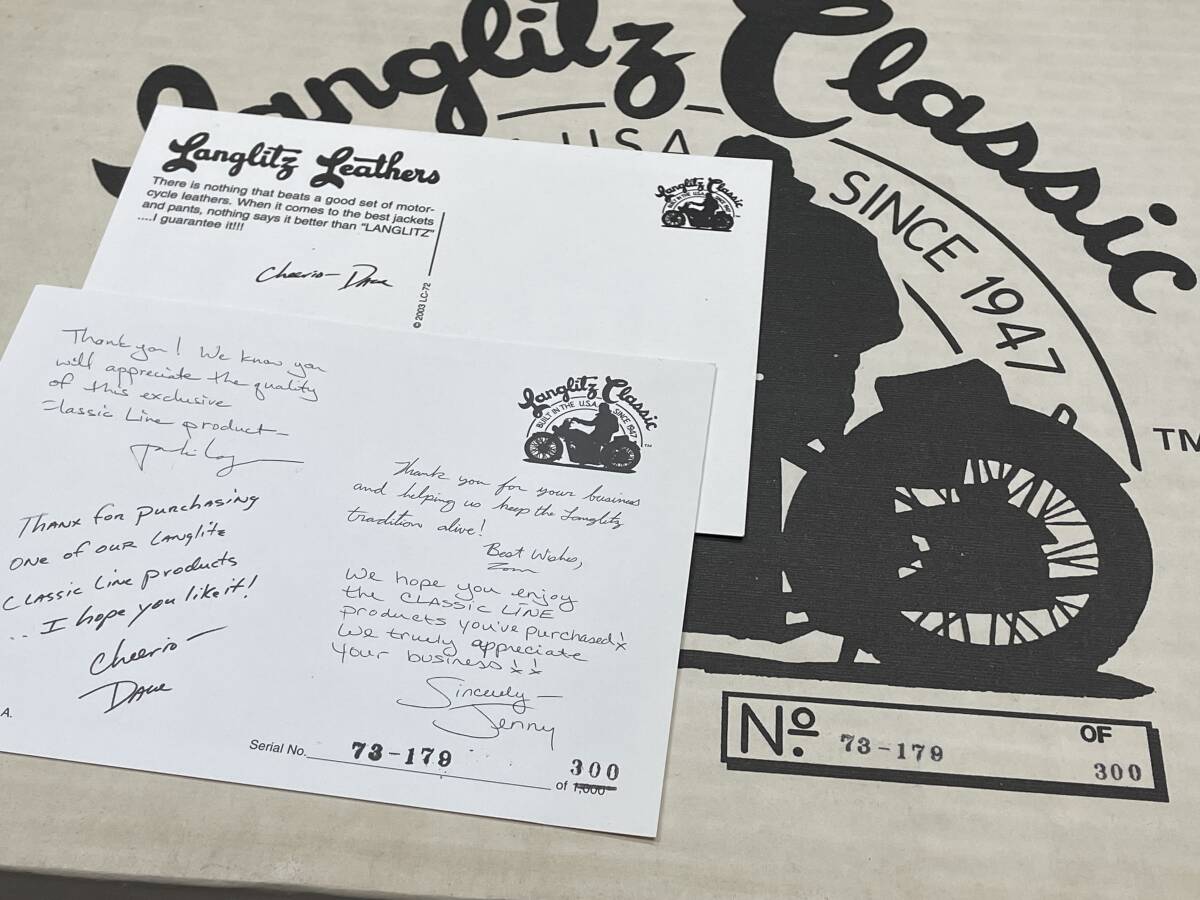 Langlitz Classic
U.S.A.
SINCE 1947
TM
Langlitz Leathers
There is nothing that beats a good set of motor-
cycle leathers. When it comes to the best jackets
and pants, nothing says it better than "LANGLITZ"
....I guarantee it!!!
Cheerio- Dave
© 2003 LC-72
Langlitz Classic
BUILT IN THE U.S.A. SINCE 1947
Thank you! We know you
will appreciate the quality
of this exclusive
Classic Line product-
Langlitz Classic
BUILT IN THE U.S.A. SINCE 1947
TM
Thank you for your business
and helping us keep the Langlitz
tradition alive!
Best Wishes,
THANX for purchasing
ONE of OUR LANglitz
CLASSIC Line products
... I hope you like it!
Cheerio-
Dave
We hope you enjoy
the CLASSIC LINE
products you've purchased!
We truely appreciate
your business!!
Sincerely-
Jenny
A.
Serial No. 73-179
300
of 1,000
Nº. 73-179 OF
300